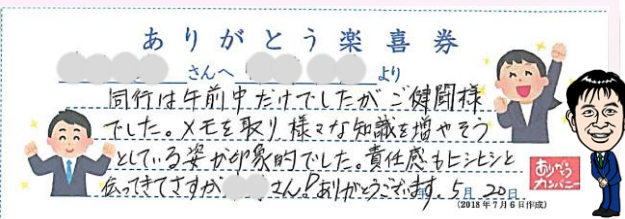 ありがとう楽喜券
さんへ より
同行は午前中だけでしたがご健闘様
でした。メモを取り様々な知識を増やそう
としている姿が印象的でした。責任感もヒシヒシと
伝ってきてさすが さん!ありがとうございます。5月20日
ありがとう
カンパニー
(2018年7月6日作成)